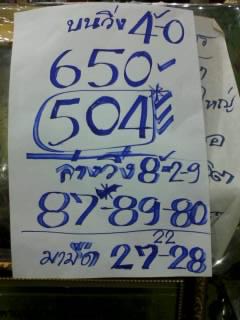 บนวิ่ง 4-0
650-
504
ล่างวิ่ง 8-29
87-89-80
22
มามืด 27-28
ใหญ่